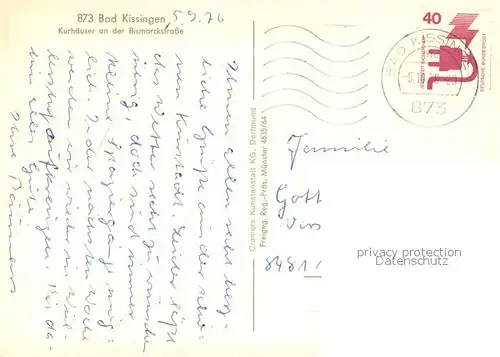 873 Bad Kissingen 5.9.76
Kurhäuser an der Bismarckstraße
Ihnen allen recht herz-
liche Grüße aus der schö-
nen Kurstadt. Leider läßt
das Wetter sehr zu wünschen
übrig, doch sind immer
kleine Spaziergänge mög-
lich. In der nächsten Woche
werden wir wieder in Weil-
bis da-
hin alles Gute
Ihre
Cramers Kunstanstalt KG, Dortmund
Freigeg. Reg.-Präs. Münster 4635/64
40
DEUTSCHE BUNDESPOST
BAD KISSINGEN
873
Familie
Gott
8481
privacy protection
Datenschutz